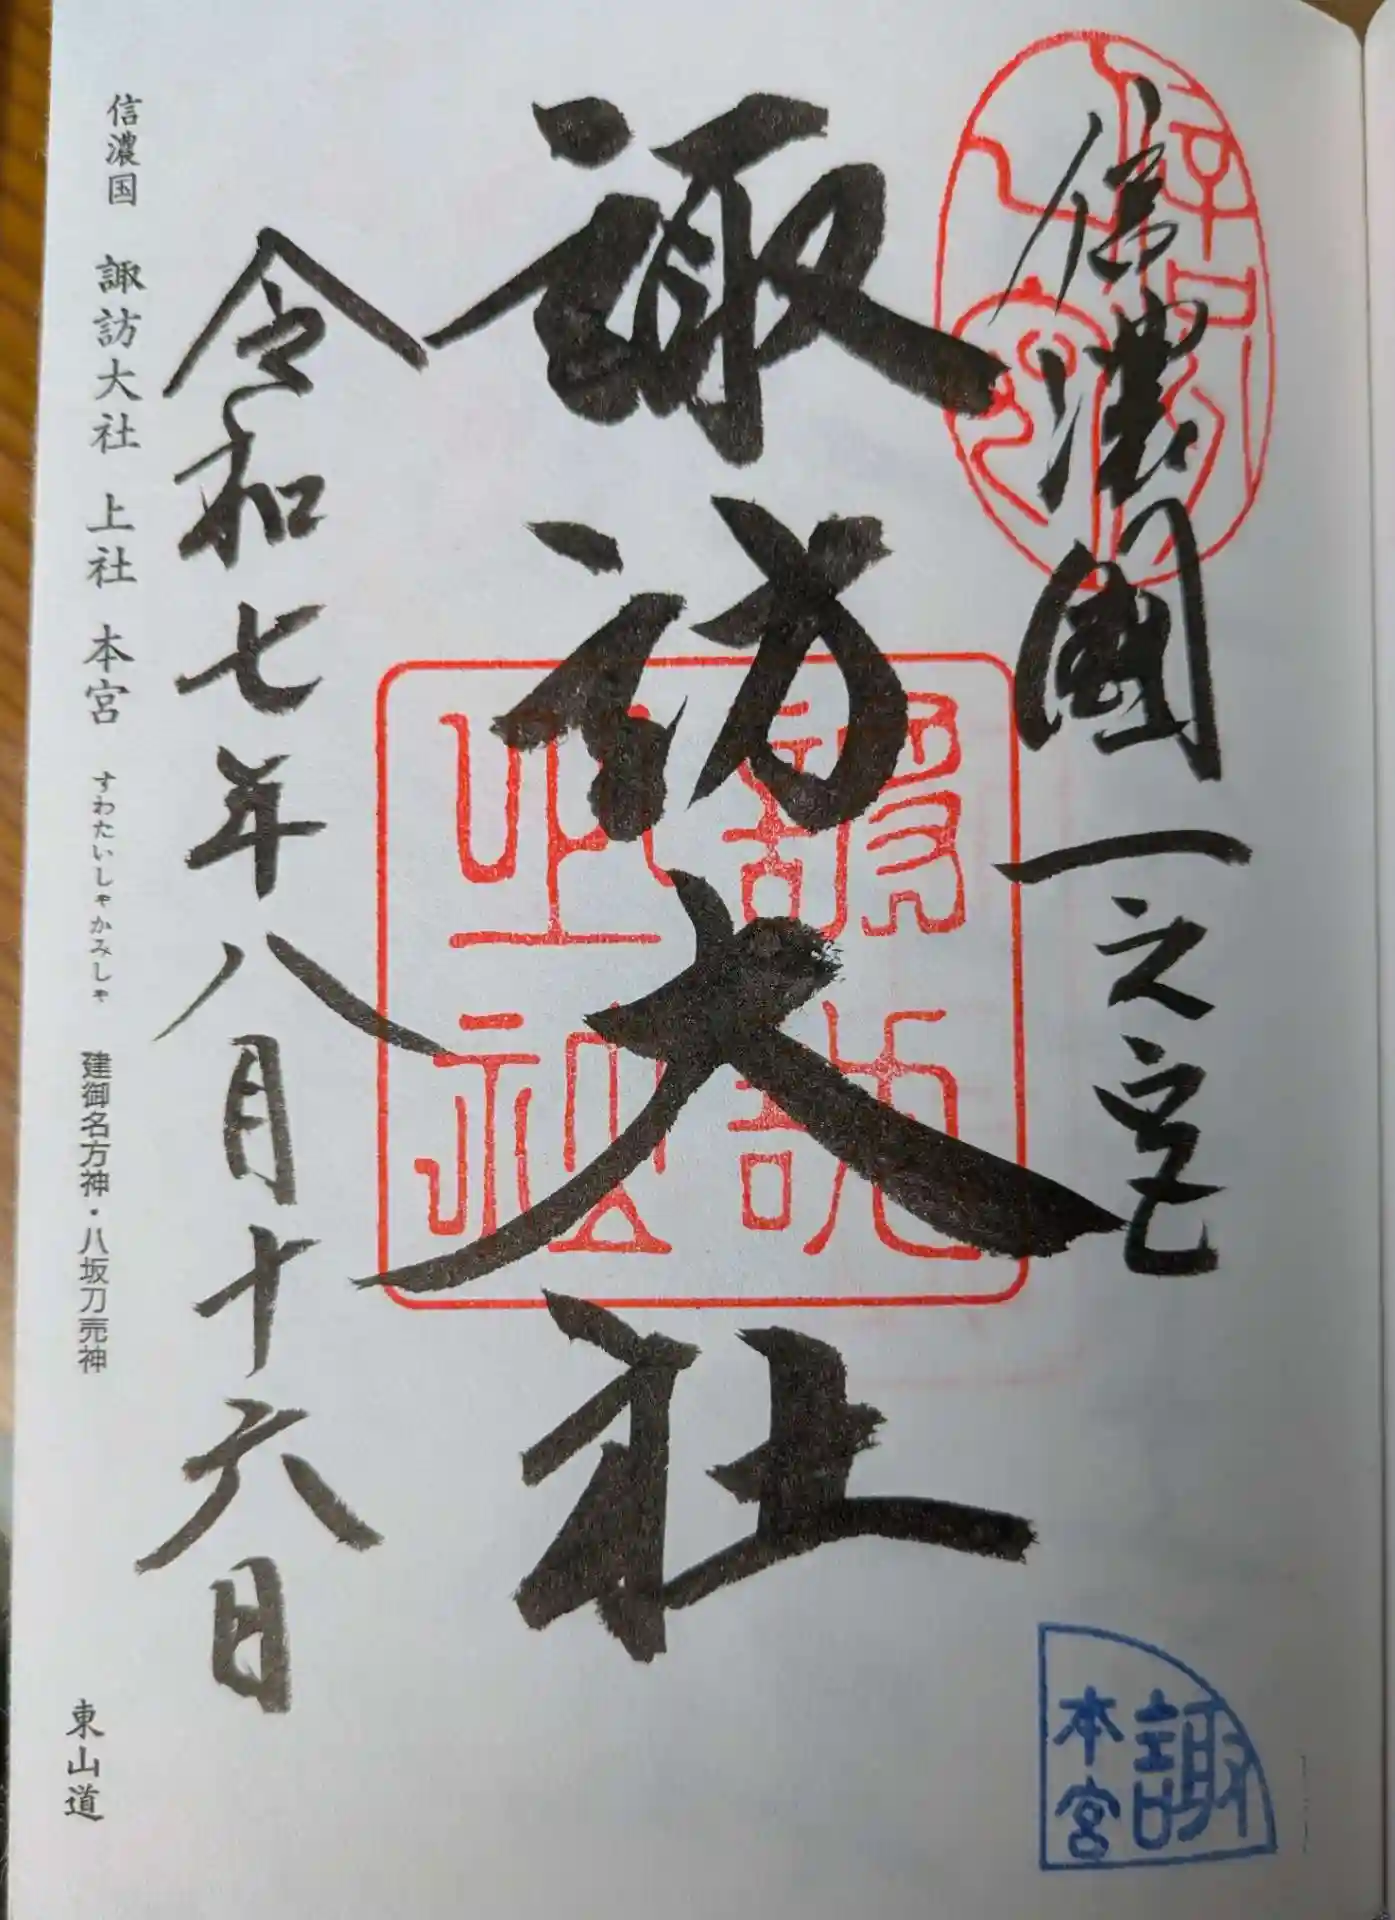 信濃國一之宮
諏訪大社
令和七年八月十六日
信濃国 諏訪大社 上社 本宮 すわたいしゃかみしゃ 建御名方神・八坂刀売神 東山道
諏
本宮